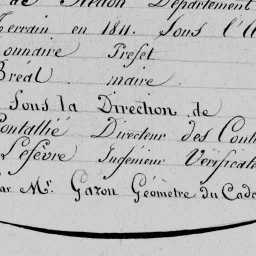 de Melton Département
Terrain en 1811. Sous l'A
ionnaire Préfet
Bréal. maire.
Sous la Direction de
Pontallié Directeur des Cont
Lefèvre Ingénieur Vérificat
ar Mr. Garon Géomètre du Cada